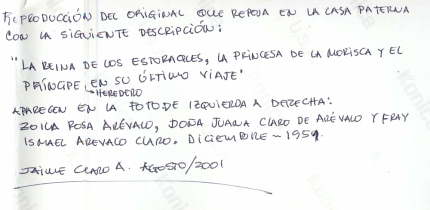 REPRODUCCIÓN DEL ORIGINAL QUE REPOSA EN LA CASA PATERNA
CON LA SIGUIENTE DESCRIPCIÓN:
"LA REINA DE LOS ESTORAQUES, LA PRINCESA DE LA MORISCA Y EL
PRÍNCIPE, EN SU ÚLTIMO VIAJE"
HEREDERO
APARECEN EN LA FOTO DE IZQUIERDA A DERECHA:
ZOILA ROSA ARÉVALO, DOÑA JUANA CLARO DE ARÉVALO Y FRAY
ISMAEL AREVALO CLARO. DICIEMBRE - 1959.
JAIME CLARO A. AGOSTO/2001